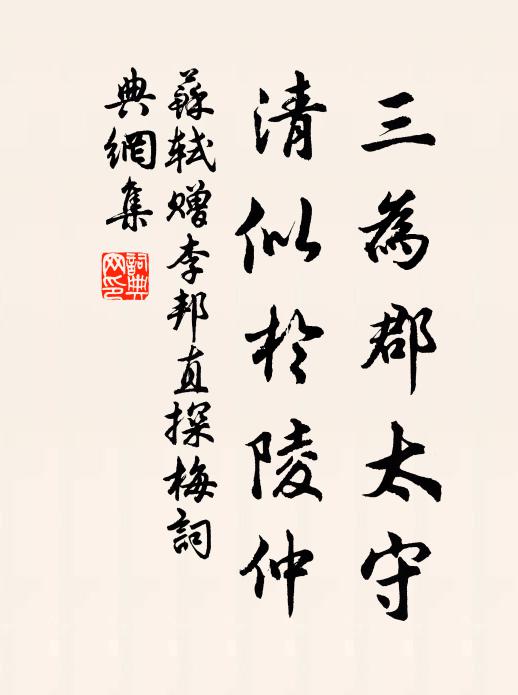 三為郡太守
清似於陵仲
蘇軾贈李邦直探梅詞
典網集
詞典网印